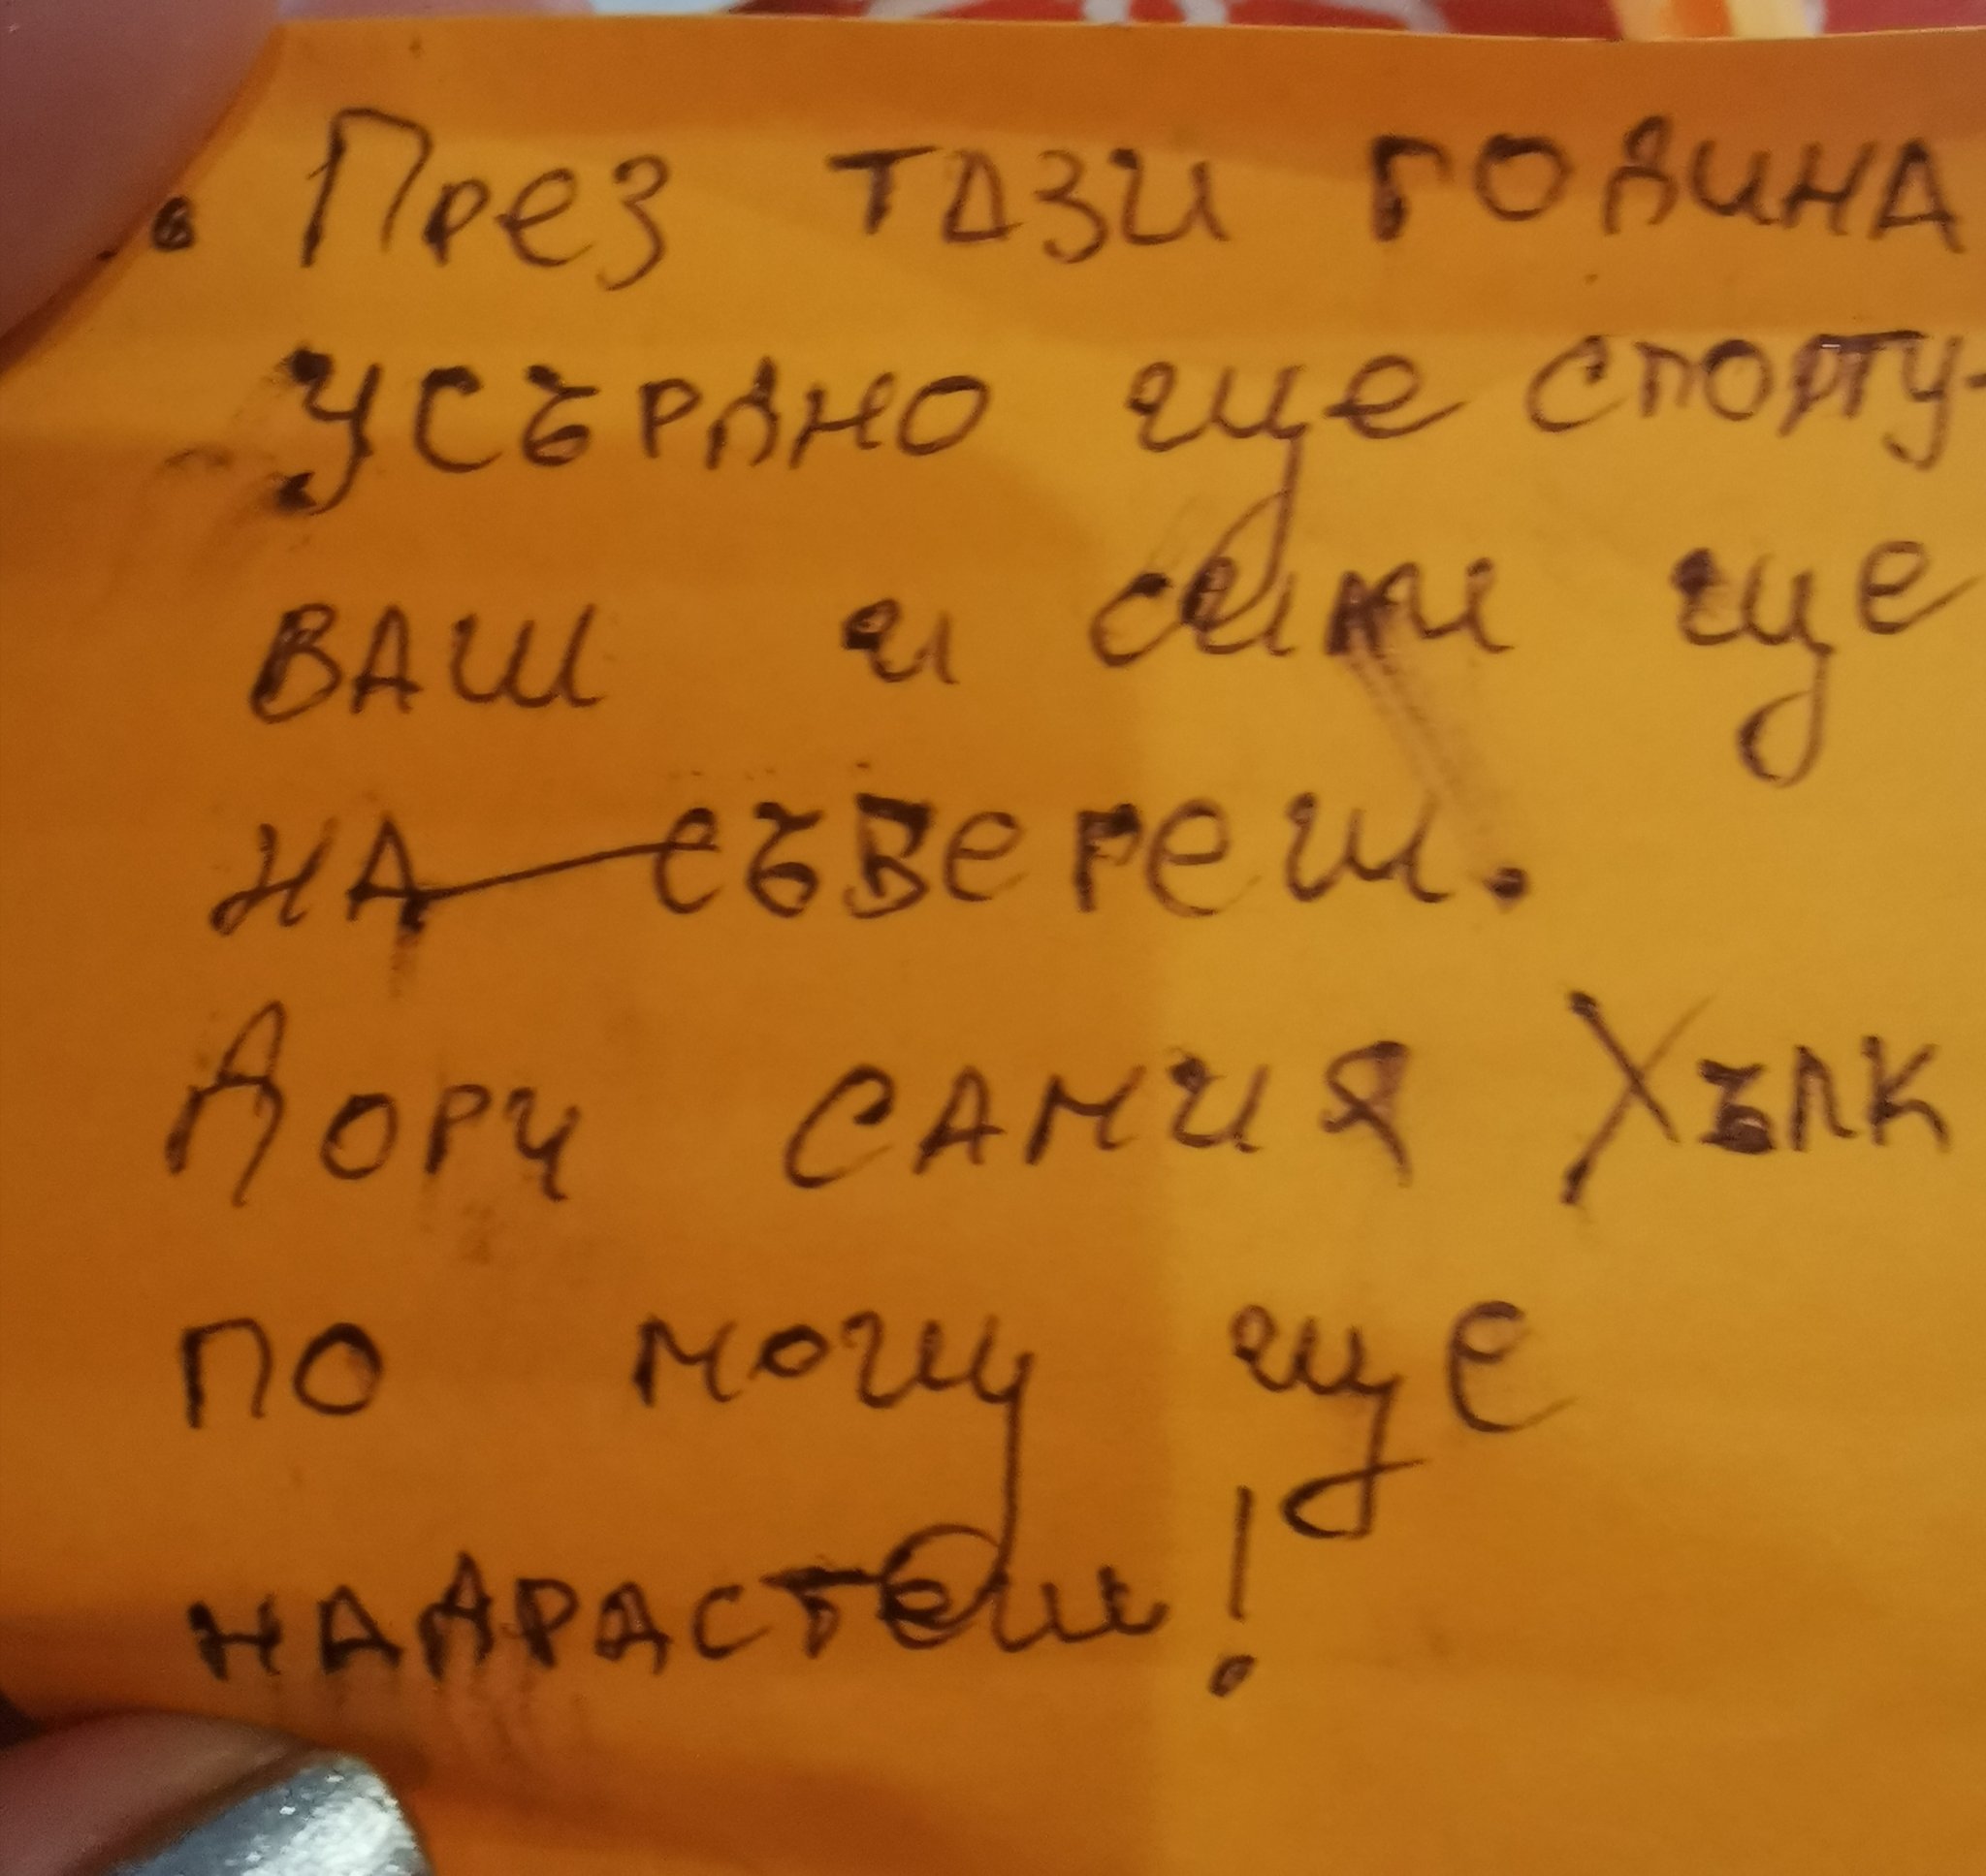 6. През тази година
усърдно ще спорту-
ваш и сили ще
на-събереш.
Дори самия Хълк
по мощ ще
надрастеш!